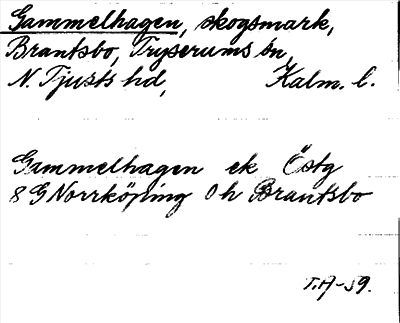 Gammelhagen, skogsmark,
Brantsbo, Tryserums sn,
N. Tjusts hd, Kalm. l.
Gammelhagen ek Östg
8 G Norrköping 0 h Brantsbo
T.A-59.